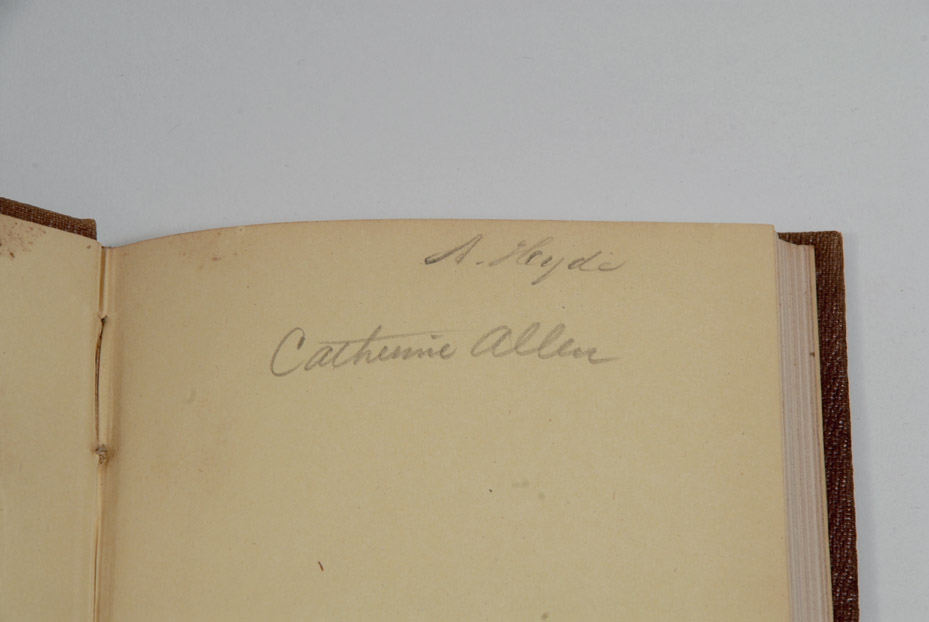 A. Hyde
Catherine Allen